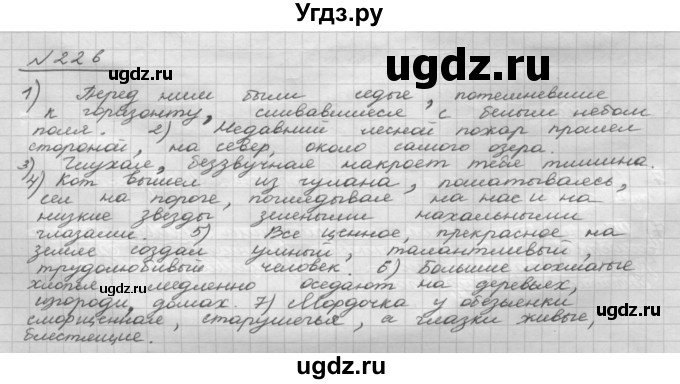 Угдз.ру
№226
ugdz.ru
ugdz.ru
1) Перед ними были седые, потемневшие
к горизонту, сшивавшиеся с белым небом
поля. 2) Недавний лесной пожар прошел
стороной, на север, около самого озера.
3) Глухая, беззвучная накроет тебя тишина.
4) Кот вышел из чулана, пошатываясь,
сел на пороге, поглядывал на нас и на
низкие звезды зелеными нахальными
глазами. 5) Все ценное, прекрасное на
земле создал умный, талантливый,
трудолюбивый человек. 6) Большие лохматые
хлопья медленно оседают на деревьях,
изгороди, домах. 7) Мордочка у обезьянки
сморщенная, старушечья, а глазки живые,
блестящие.
ugdz.ru
ugdz.ru
ugdz.ru
ugdz.ru
ugdz.ru
ugdz.ru
ugdz.ru